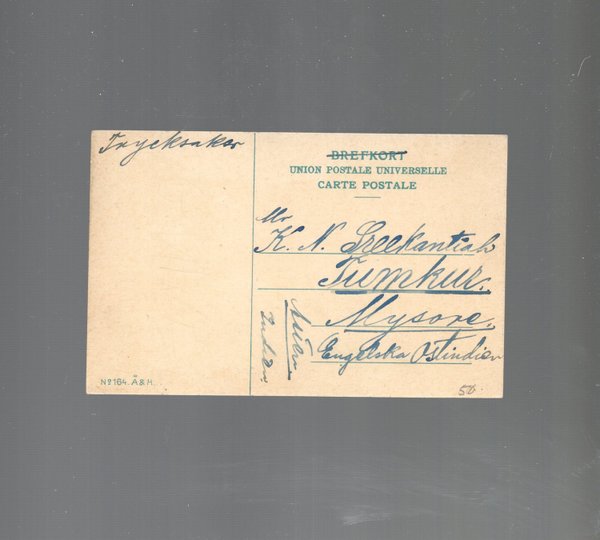 Trycksaker
BREFKORT
UNION POSTALE UNIVERSELLE
CARTE POSTALE
Mr
K. N. Sreekantiah
Tumkur.
Mysore.
Engelska Ostindien
Asien
Indien
Nº 164. Ä & H.
50.